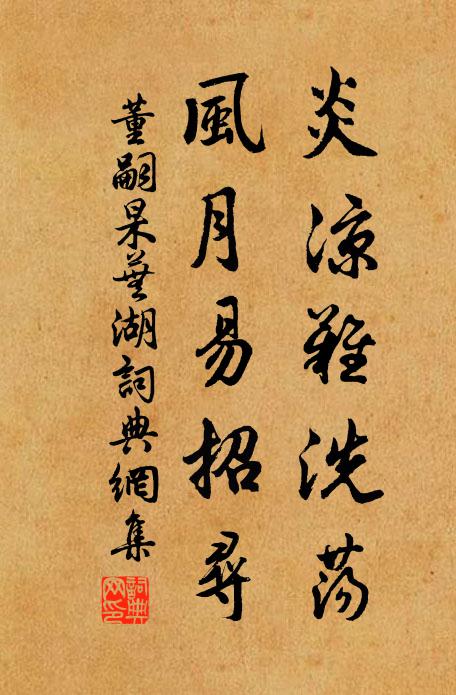 炎涼難洗蕩
風月易招尋
董嗣杲蕪湖詞典網集
詞典網印